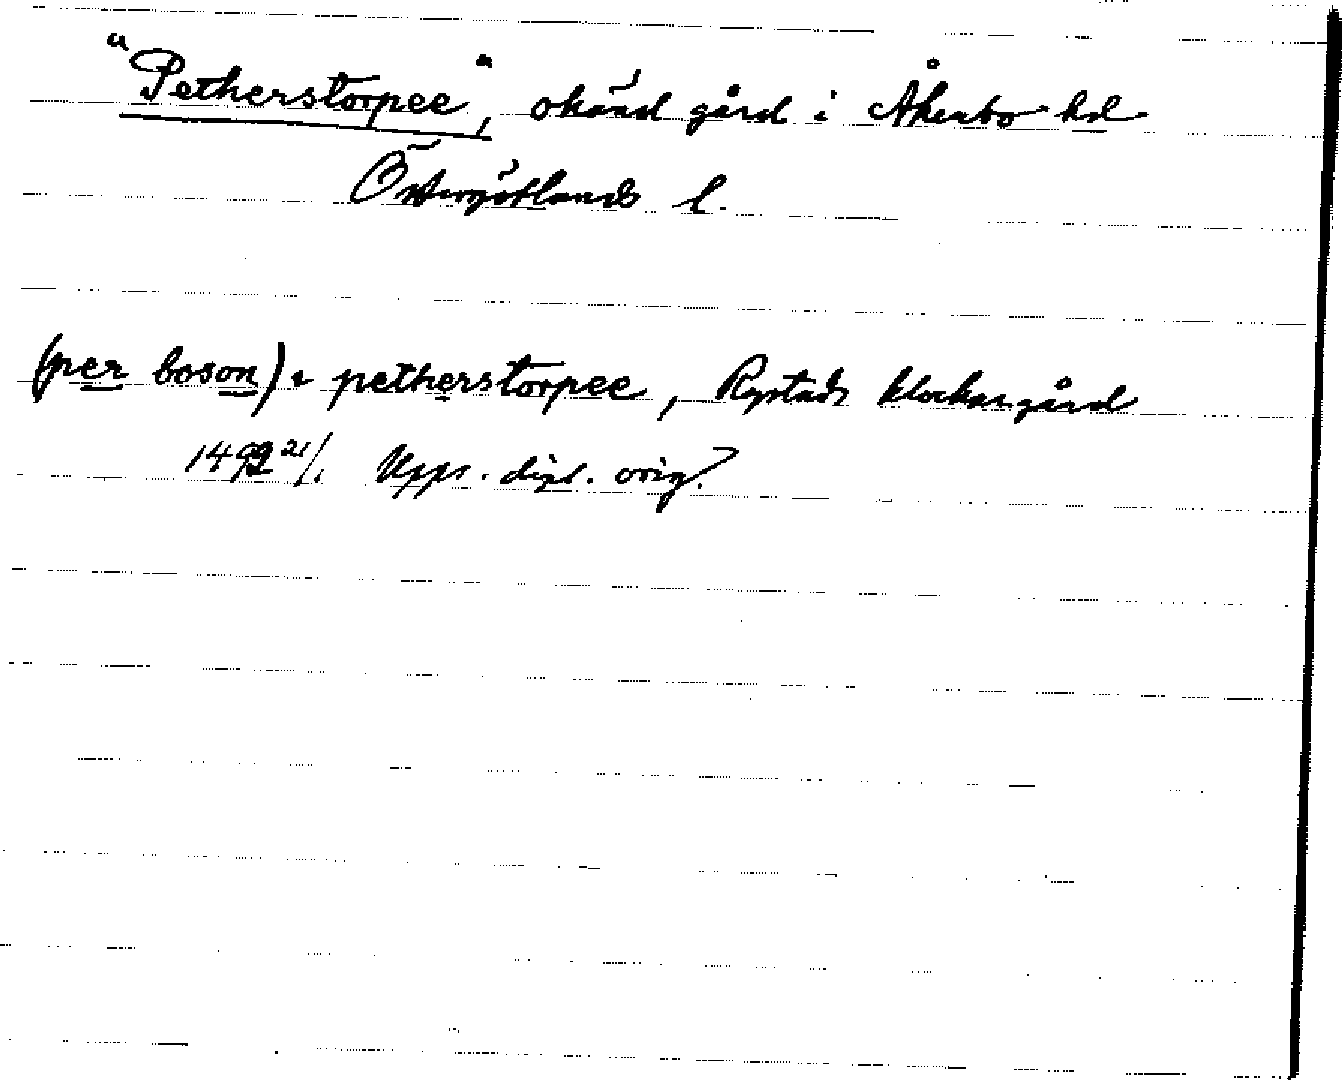 "Petherstorpee", okänd gård i Åkerbo hd
Östergötlands l.
(per boson) i petherstorpee, Rystads klockargård
1492 21/1. Upps. dipl. orig.?